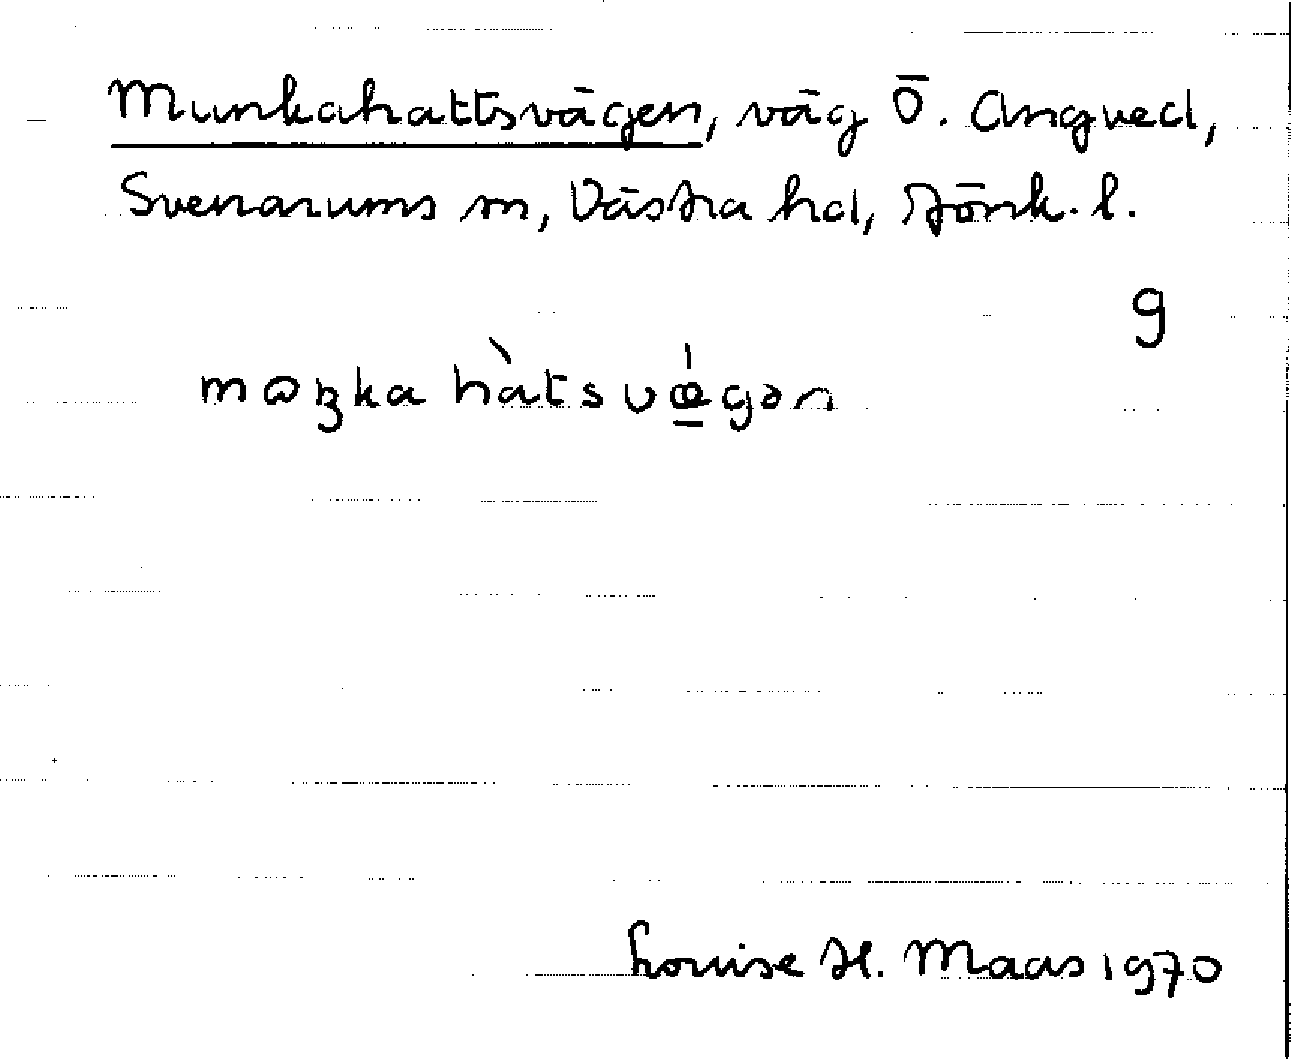 Munkahattsvägen, väg Ö. Angved,
Svenarums sn, Västra hd, Jönk. l.
g
hàtsvǽgən
Louise H. Maas 1970